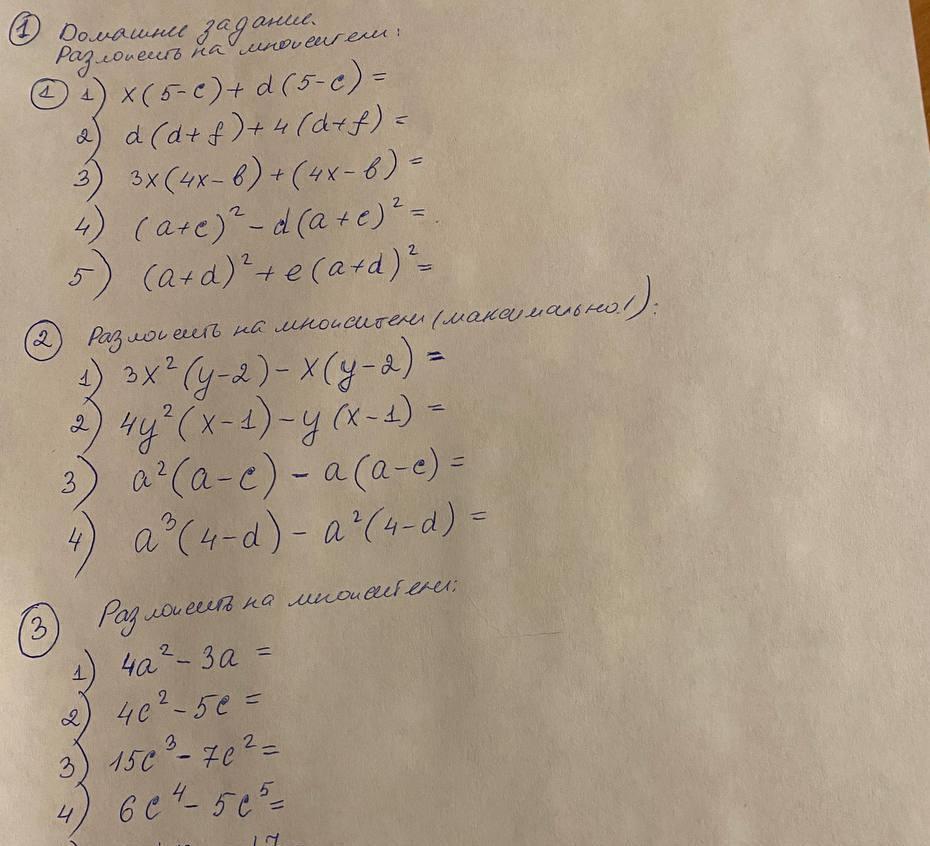 ① Домашнее задание.
Разложить на множители:
① 1) x(5-c)+d(5-c)=
2) d(d+f)+4(d+f)=
3) 3x(4x-b)+(4x-b)=
4) (a+c)²-d(a+c)²=
5) (a+d)²+e(a+d)²=
② Разложить на множители (максимально!):
1) 3x²(y-2)-x(y-2)=
2) 4y²(x-1)-y(x-1)=
3) a²(a-c)-a(a-c)=
4) a³(4-d)-a²(4-d)=
③ Разложить на множители:
1) 4a²-3a=
2) 4c²-5c=
3) 15c³-7c²=
4) 6c⁴-5c⁵=